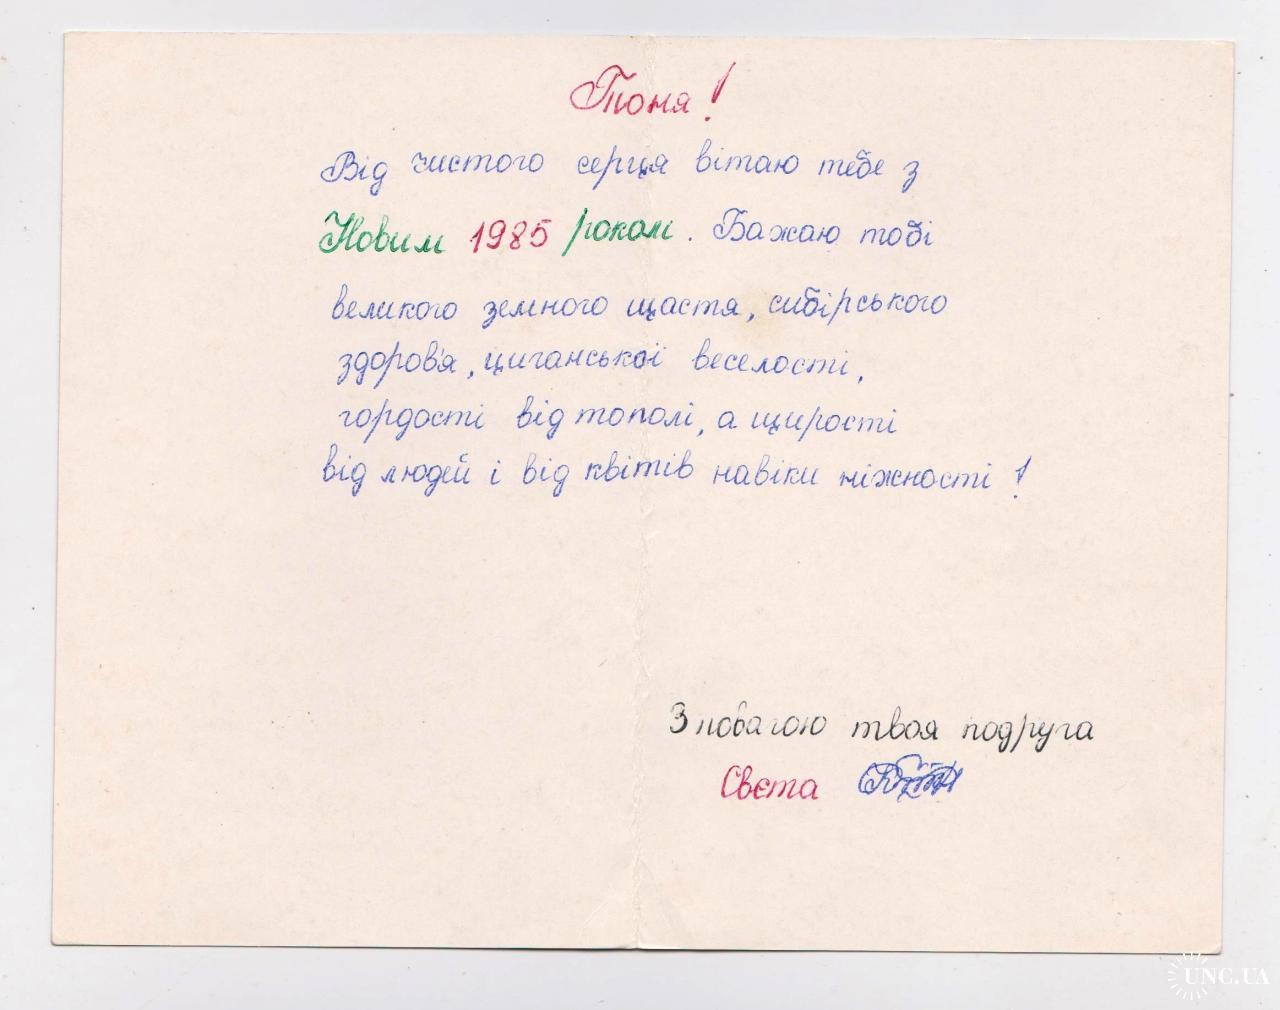 Тоня!
Від чистого серця вітаю тебе з
Новим 1985 роком. Бажаю тобі
великого земного щастя, сибірського
здоров'я, циганської веселості,
гордості від тополі, а щирості
від людей і від квітів навіки ніжності!
З повагою твоя подруга
Свєта
UNC.UA